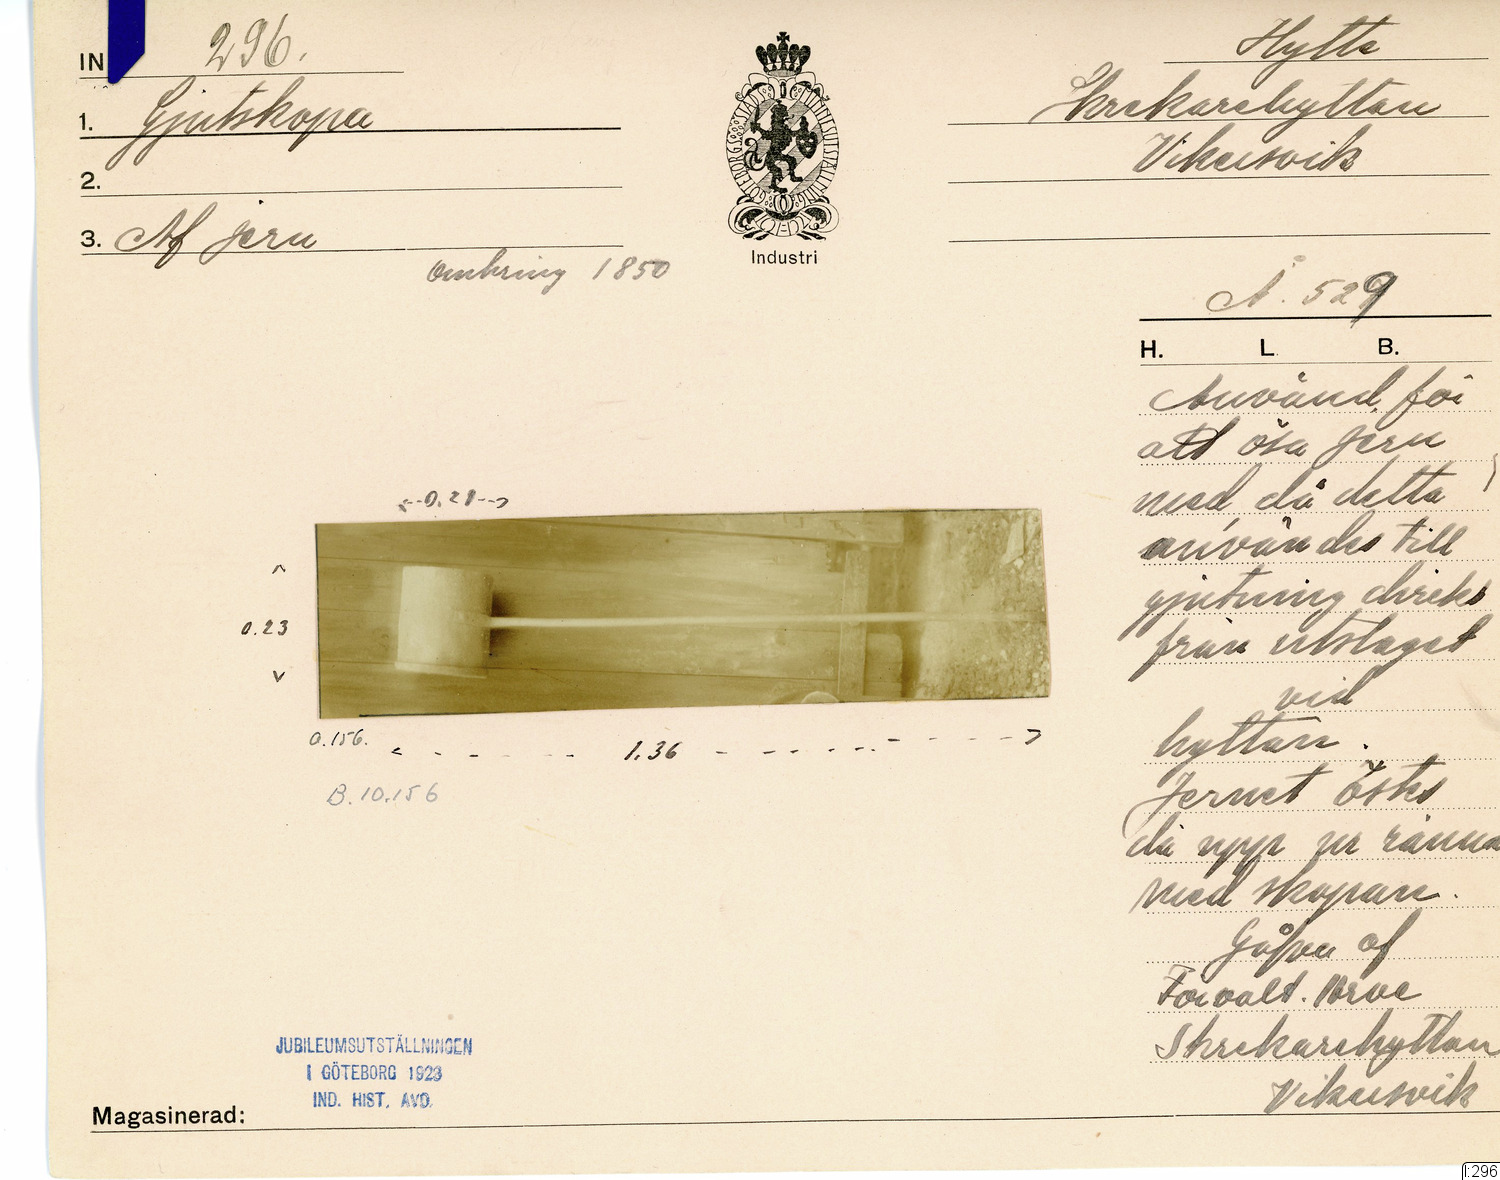 IN 296.
1. Gjutskopa
2.
3. Af jern
omkring 1850
GÖTEBORGS STADS MINNESUTSTÄLLNING
Industri
Hytte
Skrekarehyttan
Vikersvik
A. 529
H. L. B.
Använd för
att ösa jern
med då detta
användes till
gjutning direkt
från utslaget
vid
hyttan.
Jernet östes
då upp ur ränna
med skopan.
Gåfva af
Förvalt.
Skrekarehyttan
Vikersvik
0.21
0.23
0.156.
1.36
B. 10.156
JUBILEUMSUTSTÄLLNINGEN
I GÖTEBORG 1923
IND. HIST. AVD.
Magasinerad:
I:296